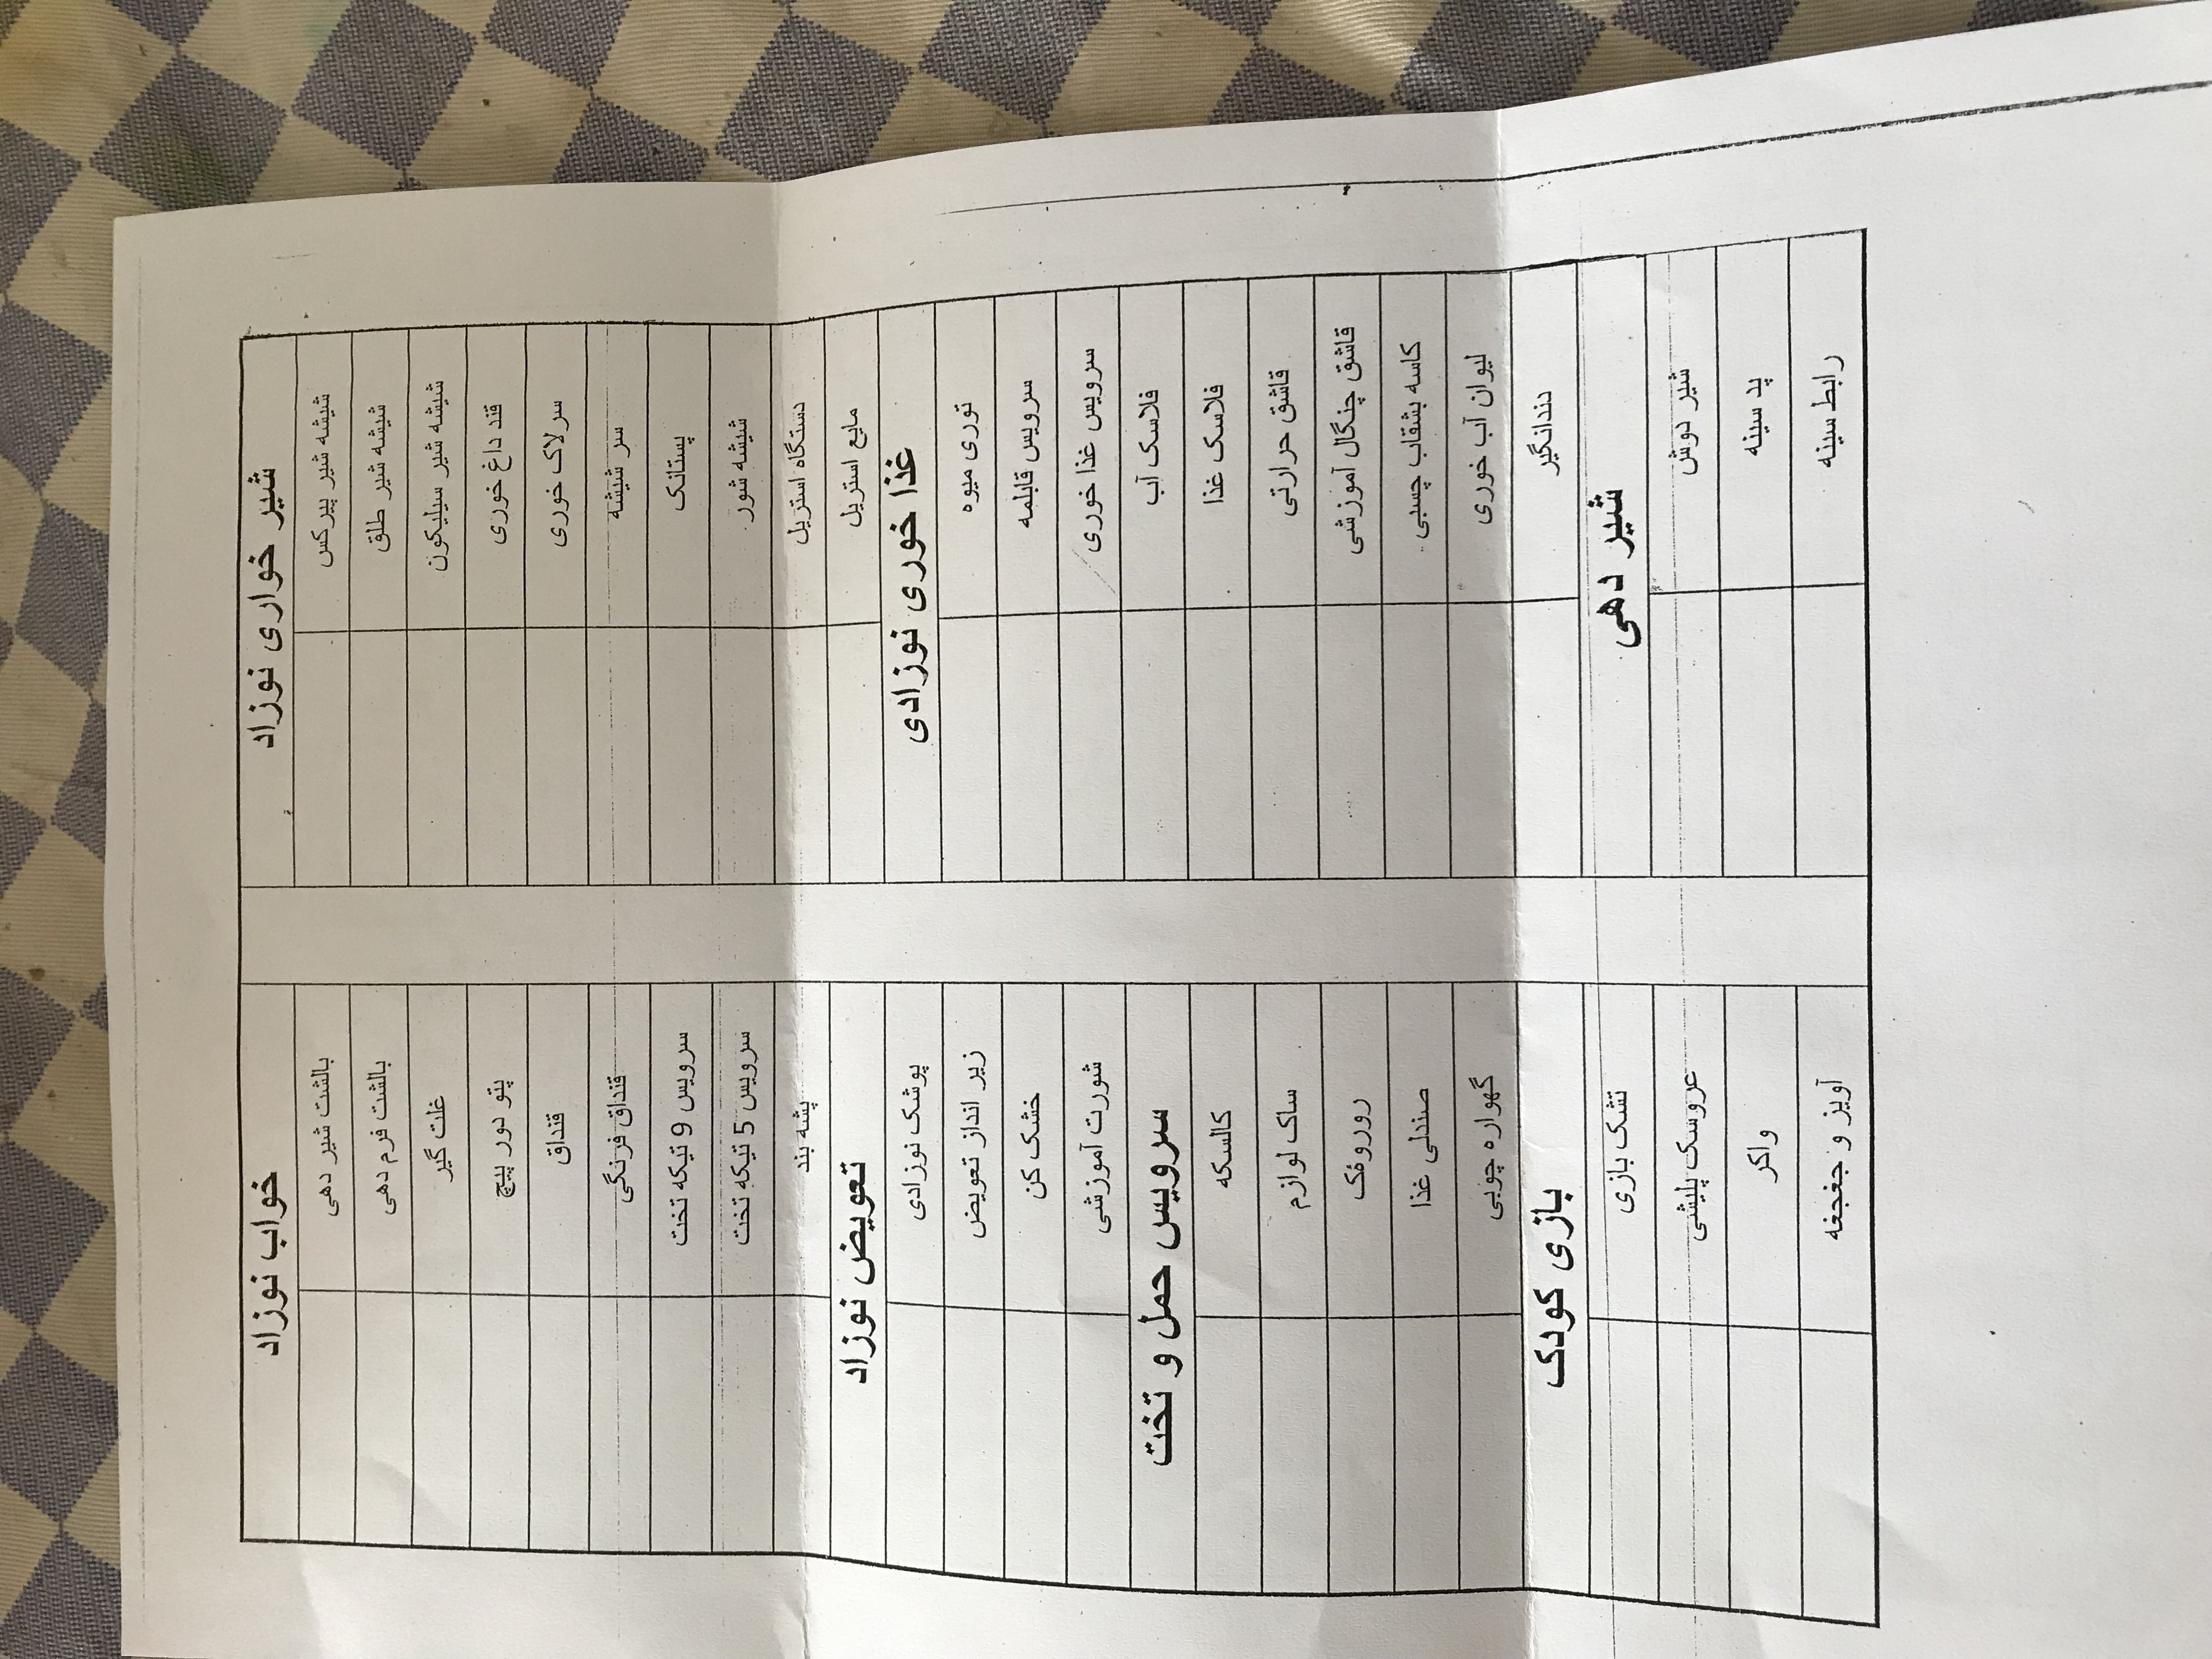 شیر خواری نوزاد
شیشه شیر پیرکس
شیشه شیر طلق
شیشه شیر سیلیکون
قند داغ خوری
سرلاک خوری
سر شیشه
پستانک
شیشه شور
دستگاه استریل
مایع استریل
غذا خوری نوزادی
توری میوه
سرویس قابلمه
سرویس غذا خوری
فلاسک آب
فلاسک غذا
قاشق حرارتی
قاشق چنگال آموزشی
کاسه بشقاب چسبی
لیوان آب خوری
دندانگیر
شیر دهی
شیر دوش
پد سینه
رابط سینه
خواب نوزاد
بالشت شیر دهی
بالشت فرم دهی
غلت گیر
پتو دور پیچ
قنداق
قنداق فرنگی
سرویس 9 تیکه تخت
سرویس 5 تیکه تخت
پشه بند
تعویض نوزاد
پوشک نوزادی
زیر انداز تعویض
خشک کن
شورت آموزشی
سرویس حمل و تخت
کالسکه
ساک لوازم
روروئک
صندلی غذا
گهواره چوبی
بازی کودک
تشک بازی
عروسک پلیشی
واکر
آویز و جغجغه